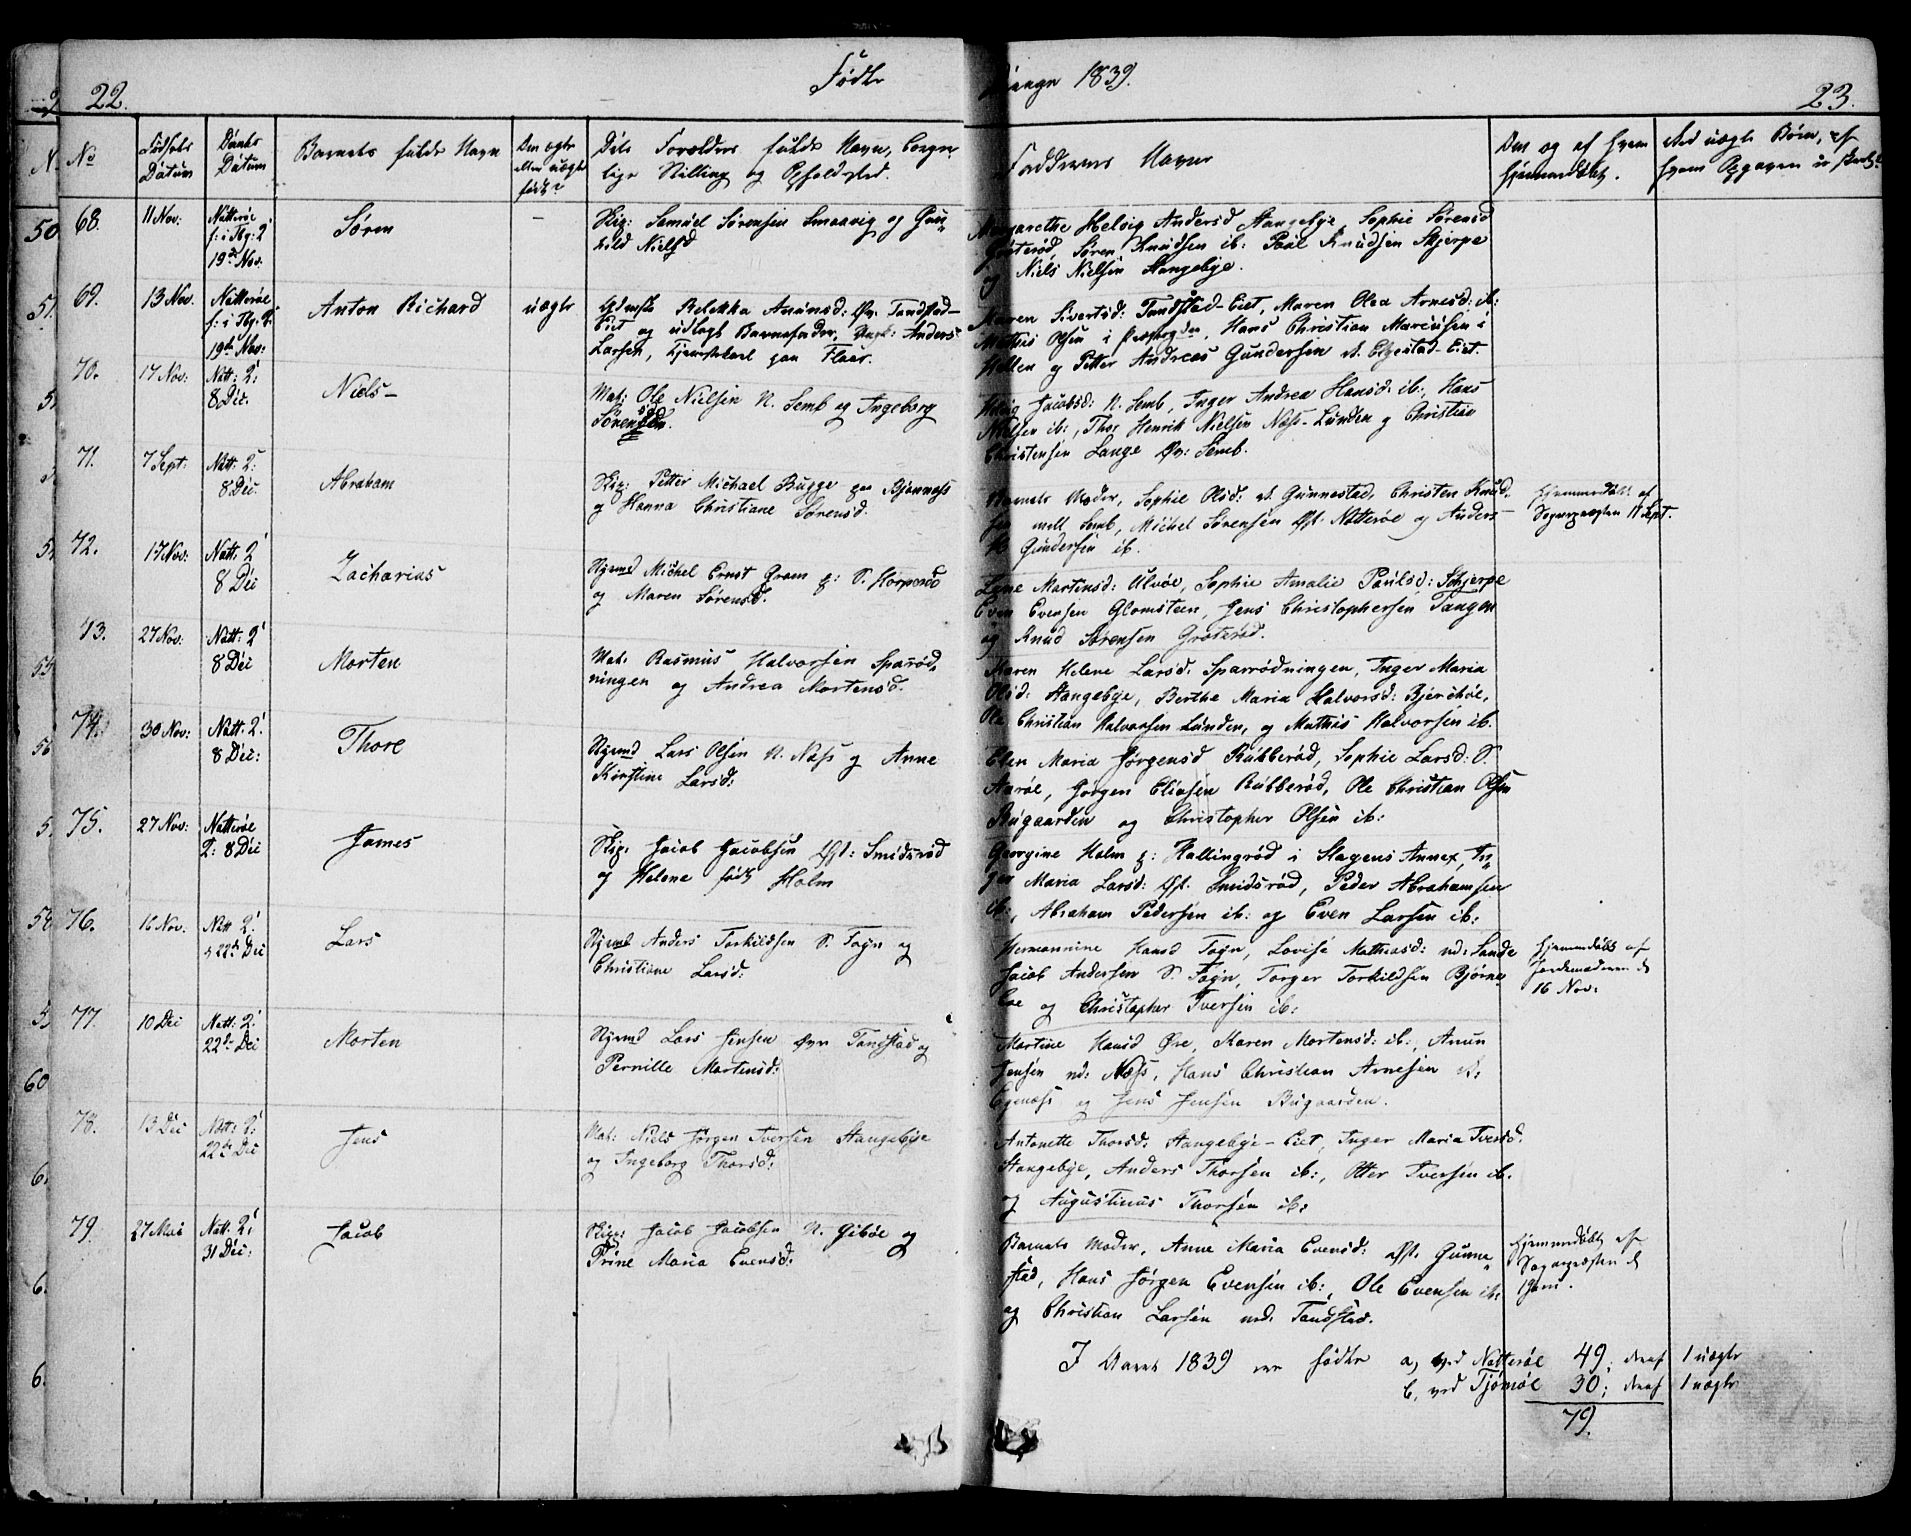 22.
Fødte
Drenge 1839.
23.
No
Fødsels Datum
Daabs Datum
Barnets fulde Navn
Den ægte eller uægte født?
Dets Forældres fulde Navn, borger-
lige Stilling og Opholdsted.
Faddernes Navne
Om og af hvem
hjemmedøbt.
Ved uægte Børn, af
hvem Opgaven er skeet.
68.
11 Nov:
Nøtterøe
19de Nov:
Søren
Skip: Samuel Sørensen Smaavig og Gun-
hild Nielsd
Margarethe Helvig Andersd Stangebye, Sophie Sørensd
Søren Knudsen ib: Poul Knudsen Skjerpe
og Niels Nielsen Stangebye.
69.
13 Nov.
Nøtterøe
19de Nov:
Anton Richard
uægte
Rebekka Anunsd: Øv. Tandstad-
Eiet og udlagt Barnefader, Anders
Larsen, Tjenestekarl paa Flaar.
Maren Sivertsd: Tandstad-Eiet, Maren Olea Arnesd: ib:
Mathis Olsen i Hans Christian Mariusen i
og Petter Andreas Gundersen Elgestad-Eiet.
70.
17 Nov:
Nøtt: 2:
8 Dec.
Niels-
Mat: Ole Nielsen N. Semb og Ingeborg
Sørensd.
Helvig Jacobsd: N. Semb, Inger Andrea Hansd: ib:, Hans
Nielsen ib:, Thor Henrik Nielsen Næss-Lunden og Christian
Christensen Lange Øv: Semb.
71.
7 Sept:
Nøtt: 2:
8 Dec.
Abraham
Skip: Petter Michael Bugge paa Bjønnæss
og Hanna Christiane Sørensd.
Barnets Moder, Sophie Olsd: V. Gunnestad, Christen Knud-
sen mell Semb, Michel Sørensen Øst: Nøtterøe og Anders
Gundersen ib.
Hjemmedøbt af
Sognepresten 11 Sept.
72.
17 Nov:
Nøtt: 2
8 Dec
Zacharias
Styrmd Michel Ernst Gram p: S. Korperød
og Maren Sørensd.
Lene Martinsd: Ulvøe, Sophie Amalie Poulsd: Skjerpe
Even Evensen Glomsteen, Jens Christophersen Tangen
og Knud Sørensen Groterød.
73.
27 Nov:
Nøtt: 2'
8 Dec
Morten
Mat. Rasmus Halvorsen Sparrød-
ningen og Andrea Mortensd.
Karen Helene Larsd: Sparrødningen, Inger Maria
Olsd: Stangebye, Berthe Maria Halvorsd: Bjerchøe,
Ole Christian Halvorsen Lunden, og Mathis Halvorsen ib.
74.
30 Nov:
Nøtt. 2'
8 Dec:
Thore
Styrmd Lars Olsen N. Næss og Anne
Kirstine Larsd:
Elen Maria Jørgensd Rubberød, Sophie Larsd: S.
Aarøe, Jørgen Eliasen Rubberød, Ole Christian Olsen
Bugaarden og Christopher Olsen ib:
75.
27 Nov:
Nøtterøe
2: 8 Dec
James
Skip: Jacob Jacobsen Øst: Smidsrød
og Helene født Holm
Georgine Holm p: Hallingrød i Slagens Annex, In-
ger Maria Larsd: Øst. Smidsrød, Peder Abrahamsen
ib:, Abraham Pedersen ib: og Even Larsen ib:
76.
16 Nov.
Nøtt 2'
22de Dec
Lars
Styrmd Anders Torkildsen S. Føyn og
Christiane Larsd:
Hermannine Hansd Føyn, Lovise Mathiasd: nd: Sande
Jacob Andersen S. Føyn, Torger Torkildsen Bjørne-
boe og Christopher Iversen ib:
Hjemmedøbt af
Jordemoderen d
16 Nov:
77.
10 Dec
Nøtt: 2'
22de Dec
Morten
Styrmd Lars Jensen Øvr Tandstad og
Pernille Mortensd:
Martine Hansd Øre, Karen Mortensd: ib:, Anun
Jensen nd: Næss, Hans Christian Arnesen V:
Egenæss og Jens Jensen Bugaarden.
78.
13 Dec
Nøtt: 2'
22de Dec
Jens
Mat: Niels Jørgen Iversen Stangebye
og Ingeborg Thorsd:
Antonette Thorsd: Stangebye-Eiet, Inger Maria Iversd.
Stangebye, Anders Thorsen ib:, Otter Iversen ib.
og Augustinus Thorsen ib:
79.
27 Mai
Nøtt. 2'
31 Dec:
Jacob
Skip: Jacob Jacobsen N. Gibøe og
Trine Maria Evensd:
Barnets Moder, Anne Maria Evensd: Øst. Gunne-
stad, Hans Jørgen Evensen ib:, Ole Evensen ib:
og Christian Larsen ned. Tandstad.
Hjemmedøbt af
Sognepresten d
1 Juni.
I Aaret 1839 ere fødte a, ved Nøtterøe 49; deraf 1 uægte
b, ved Tjømøe 30; deraf 1 uægte
79.